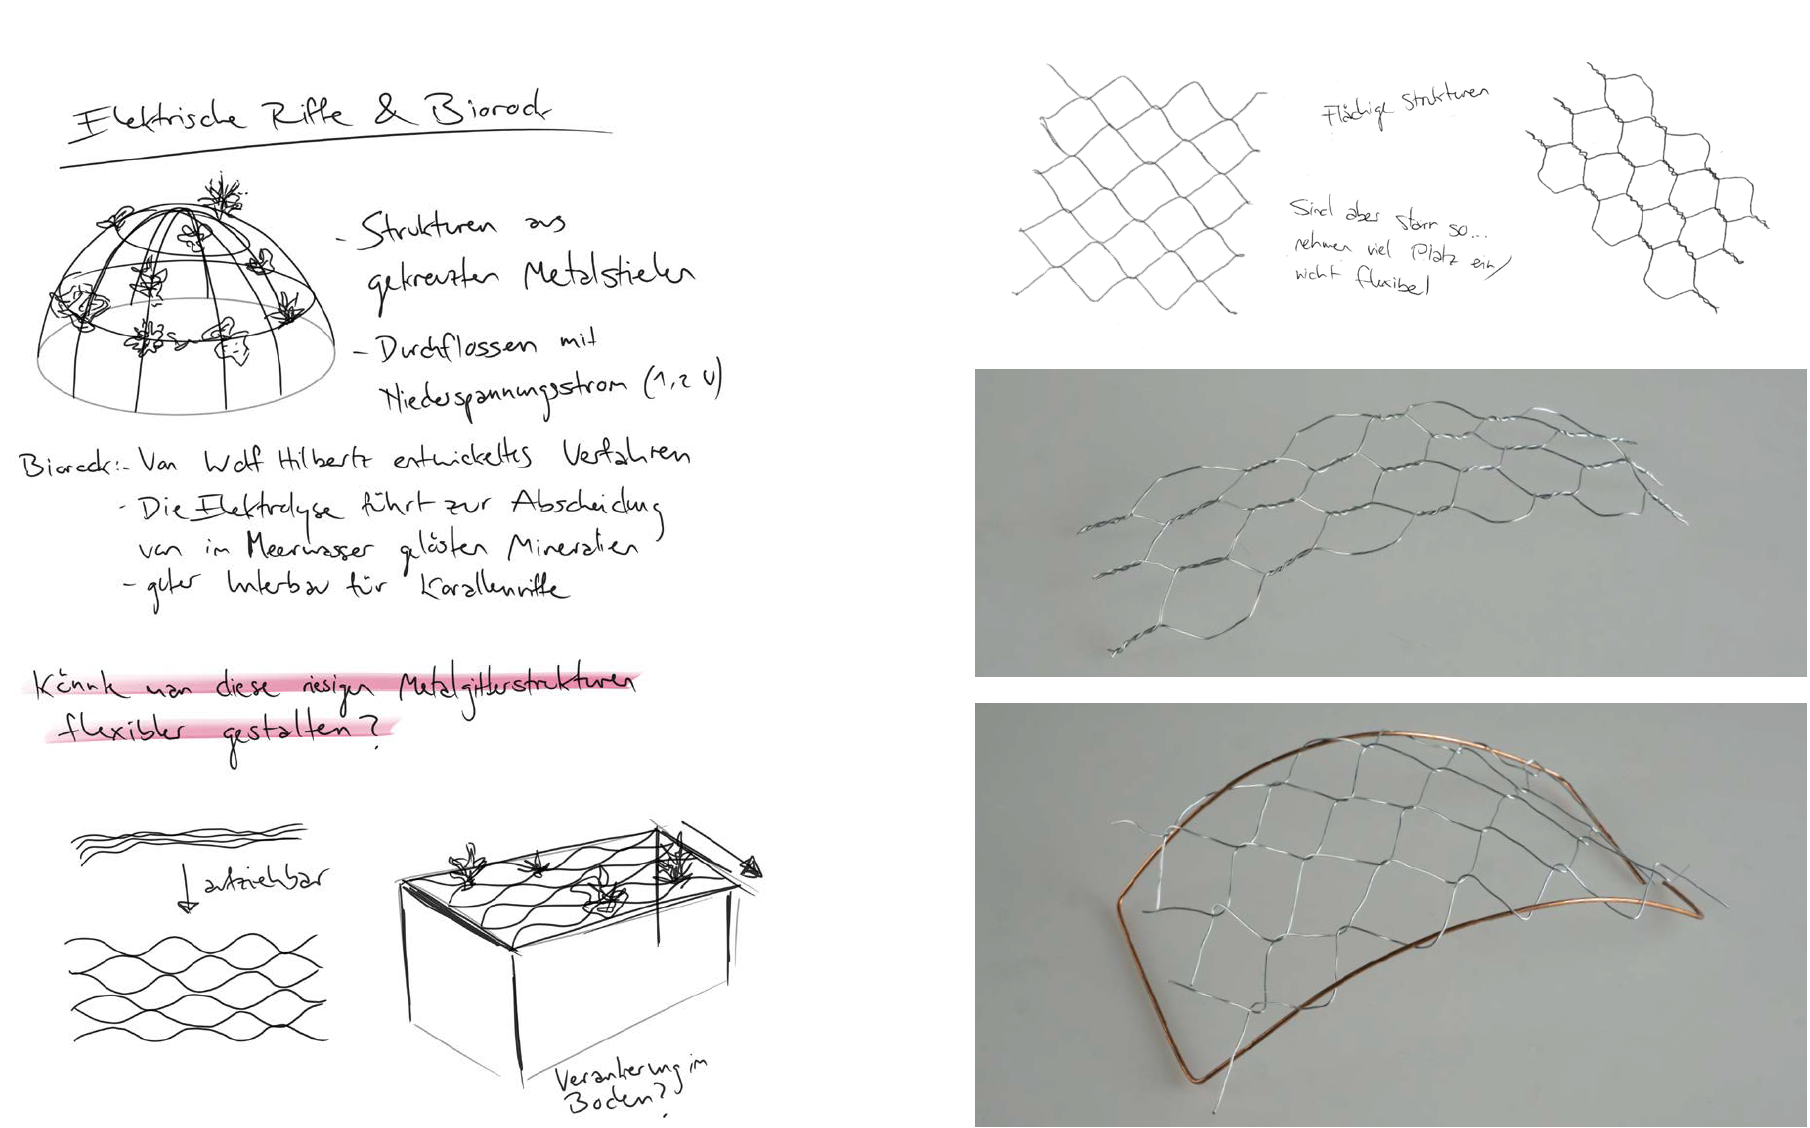 Elektrische Riffe & Biorock
- Strukturen aus
gekreuzten Metalstielen
- Durchflossen mit
Niederspannungsstrom (1,2 V)
Biorock:- Von Wolf Hilbertz entwickeltes Verfahren
- Die Elektrolyse führt zur Abscheidung
von im Meerwasser gelösten Mineralien
- guter Unterbau für Korallenriffe
Könnte man diese riesigen Metalgitterstrukturen
flexibler gestalten?
aufziehbar
Verankerung im
Boden?
Flächige Strukturen
Sind aber starr so...
nehmen viel Platz ein/
nicht flexibel